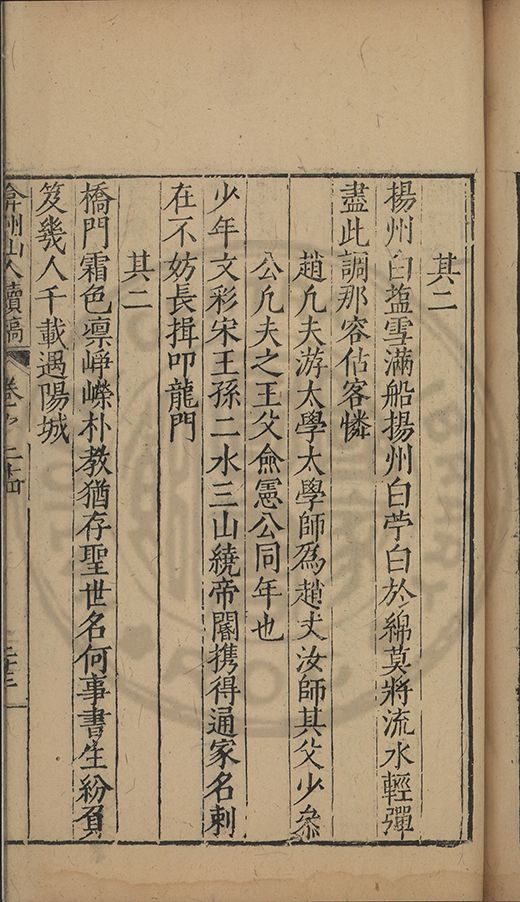 其二
楊州白塩雪滿船揚州白苧白於綿莫將流水輕彈
盡此調那容估客憐
趙凢夫游太學太學師爲趙丈汝師其父少叅
公凢夫之王父僉憲公同年也
少年文彩宋王孫二水三山繞帝閽携得通家名刺
在不妨長揖叩龍門
其二
橋門霜色凛崢嶸朴教猶存聖世名何事書生紛負
笈幾人千載遇陽城
弇州山人續稿 卷之二十四